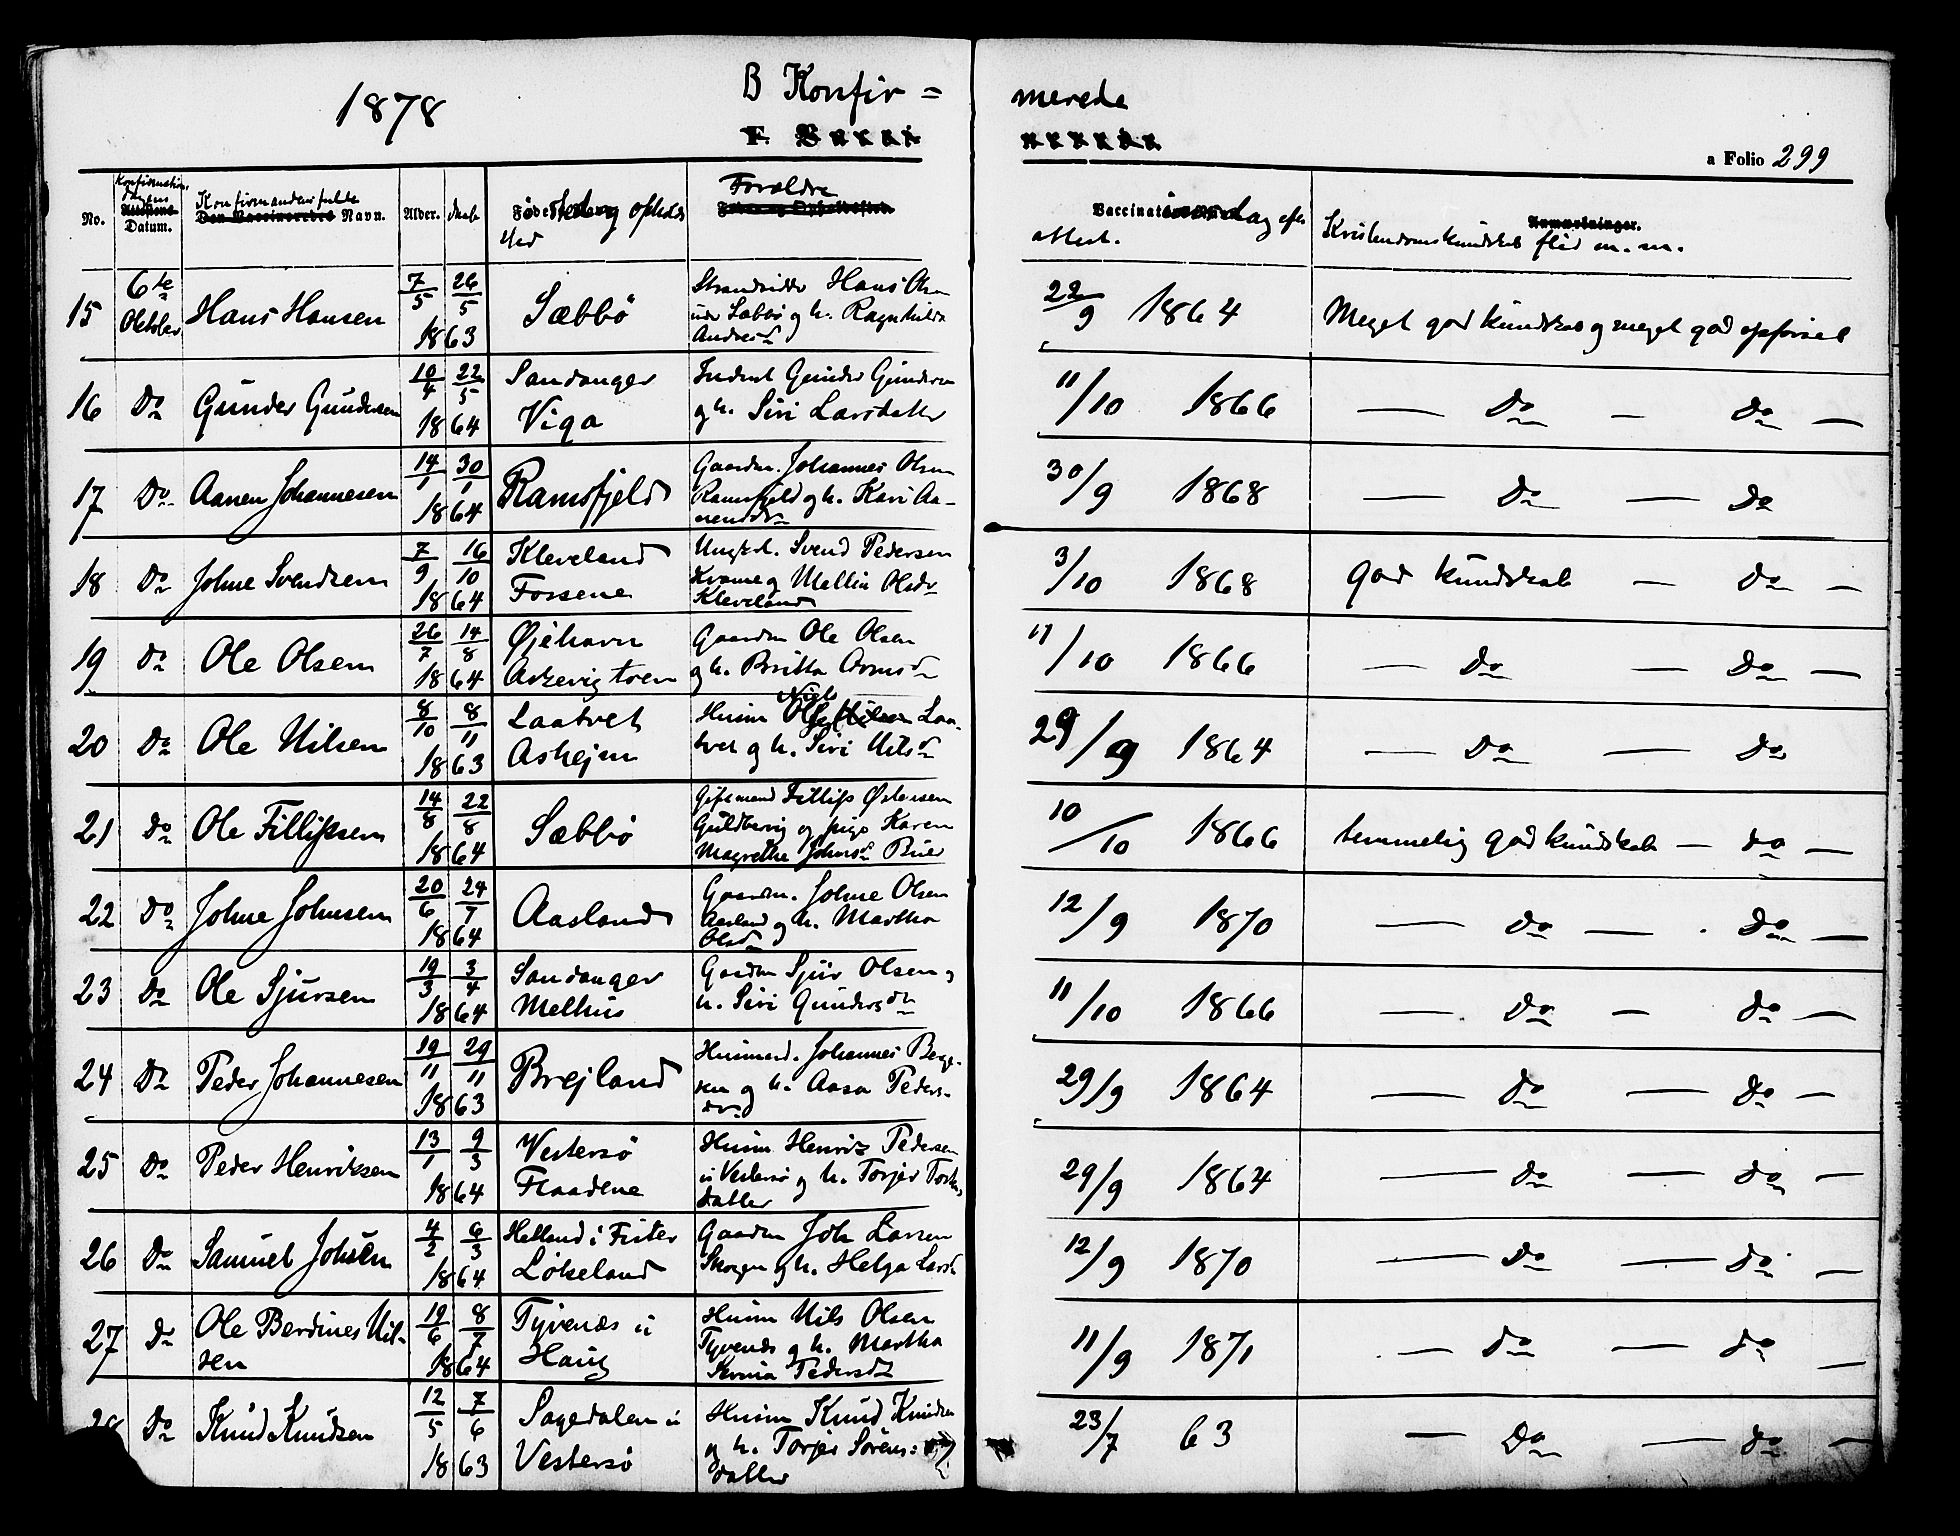 1878
B Konfir =
merede
F. Vacci
a Folio 299
No.
Konfirmation
Datum.
Konfirmandens fulde
Den Vaccineredes Navn.
Alder.
Daab
Føde sted og opholds
sted
Forældre
Vaccinat
attest.
Kristendomskundskab flid m. m.
Anmærkninger.
15 6te Oktober Hans Hansen 7/5 26/5 1863 Sæbbø
Strandsidder Hans Olsen
Sæbbø og h. Ragnhilda
Andresd
22/9 1864 Meget god kundskab og meget god opførsel
16 Do Gunder Gundersen 10/4 22/5 1864 Sandanger
Viga
Inderst Gunder Gundersen
og h. Siri Larsdatter
11/10 1866 — Do — Do —
17 Do Aanen Johannesen 14/1 30/1 1864 Ramsfjeld
Gaardm. Johannes Olsen
Ramsfjeld og h. Kari Aa-
nensdtr
30/9 1868 — Do — Do
18 Do Johne Svendsen 7/9 16/10 1864 Kleveland
Fossene
Ungkrl. Svend Pedersen
Krame og Mallin Olsdr
Kleveland
3/10 1868 God kundskab — Do —
19 Do Ole Olsen 26/7 14/8 1864 Øjehavn
Askevigtoen
Gaardm Ole Olsen
og h. Britta Ormsd
11/10 1866 — Do — Do —
20 Do Ole Nilsen 8/10 8/11 1863 Laatvet
Ashejm
Niels
Husm Laa-
tvet og h. Siri Nilsd
29/9 1864 — Do — Do
21 Do Ole Fillipsen 14/8 22/8 1864 Sæbbø
Giftmand Fillip Østensen
Guldberg og pige Karen
Magrethe Johnsd Buer
10/10 1866 temmelig god kundskab — Do —
22 Do Johne Johnsen 20/6 24/7 1864 Aasland
Gaardm. Johne Olsen
Aasland og h. Martha
Olsd
12/9 1870 — Do — Do —
23 Do Ole Sjursen 19/3 3/4 1864 Sandanger
Melhus
Gaardm Sjur Olsen og
h. Siri Gundersdtr
11/10 1866 — Do — Do —
24 Do Peder Johannesen 19/11 29/11 1863 Brejland
Husmand. Johannes Berge-
sen og h. Aasa Peders-
dtr
29/9 1864 — Do — Do —
25 Do Peder Henriksen 13/1 9/3 1864 Vestersø
Flaadene
Husm Henrik Pedersen
u Vestersø og h. Torjer Torkels
datter
29/9 1864 — Do — Do —
26 Do Samuel Johsen 4/2 6/3 1864 Helland i Fister
Løkeland
Gaardm Joh Larsen
Skogen og h. Helga Larsd
12/9 1870 — Do — Do —
27 Do Ole Berdines Nil-
sen 19/6 8/7 1864 Tyvenæs u
Haug
Husm Nils Olsen
Tyvenæs og h. Martha
Serina Pedersdtr
11/9 1871 — Do — Do —
28 Do Knud Knudsen 12/5 7/6 1863 Sagedalen u
Vestersø
Husm Knud Knudsen
og h. Torjer Sørens:
datter
23/7 63 — Do — Do —